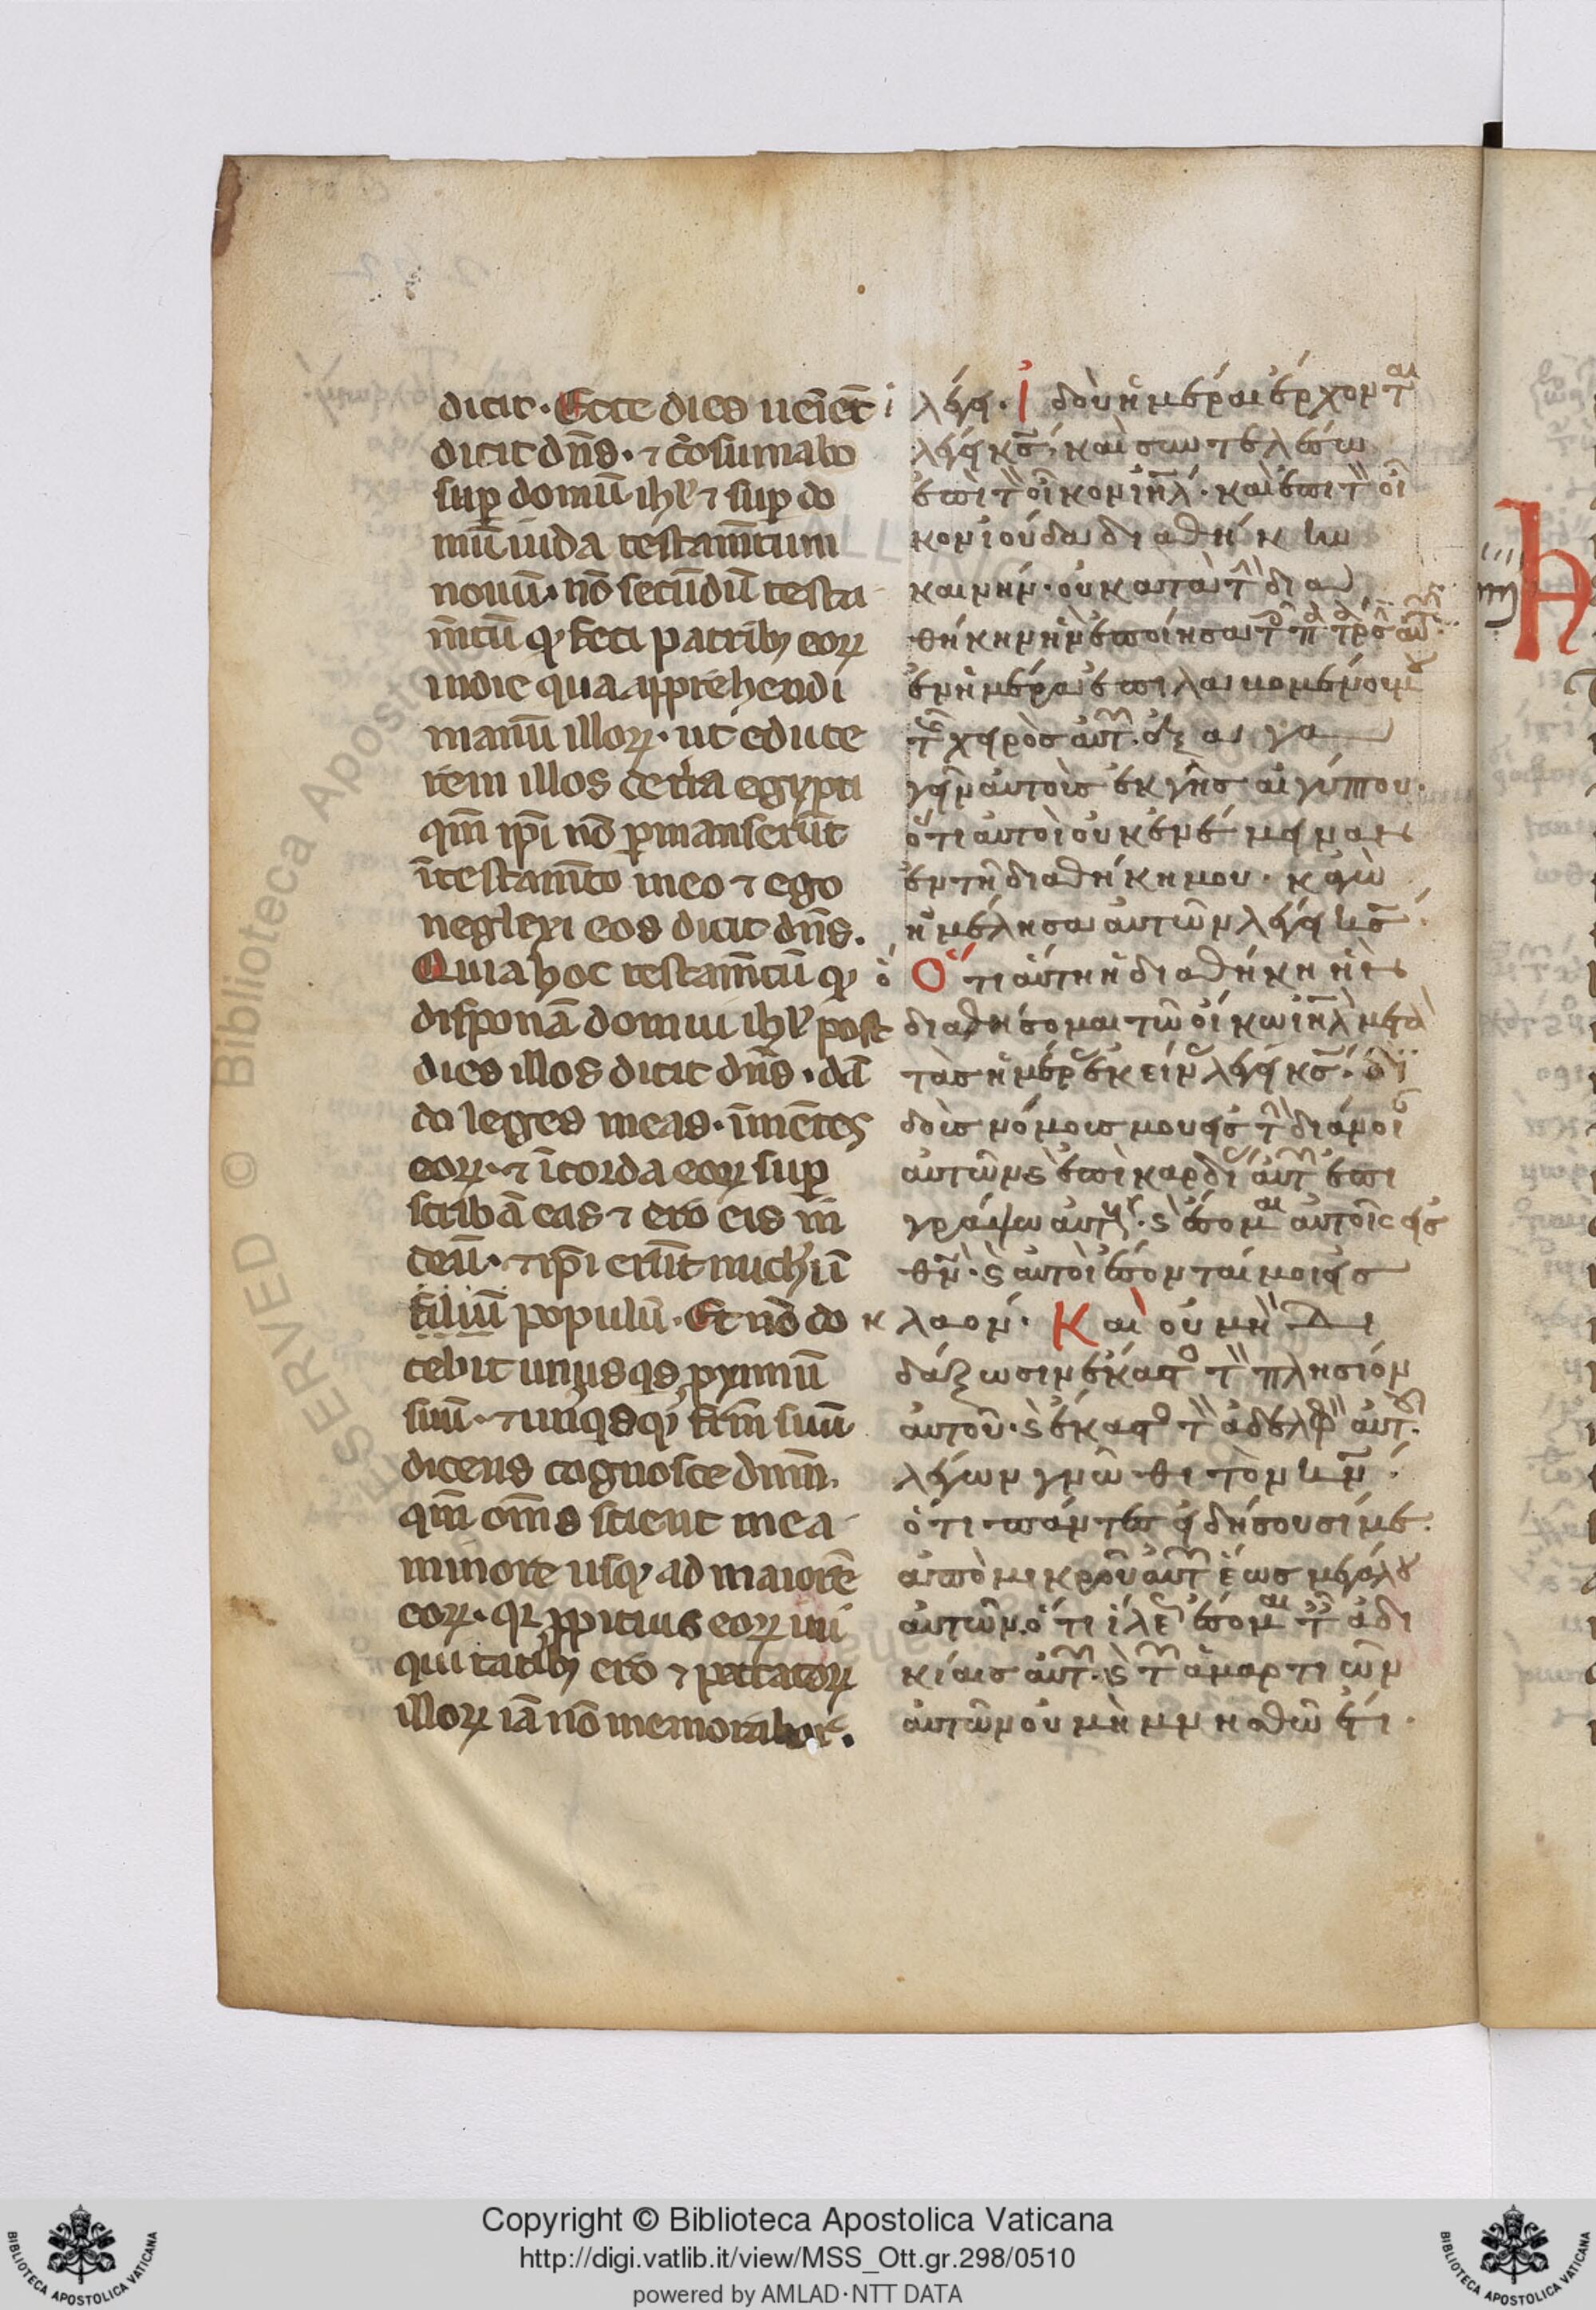 dicit. Ecce dies ueniēt i
dicit dn̄s. ⁊ cōsumabo
sup̱ domū ihl̓ ⁊ sup̱ do
mū iuda testam̄tum
nouū. nō secūdū testa
m̄tū qꝫ feci patribꝫ eoꝝ
in die qua app̱rehendi
manū illoꝝ. ut educe
rem illos de t̓ra egypti
qm̄ ip̄i nō ꝑmanserūt
ī testam̄to meo ⁊ ego
neglexi eos dicit dn̄s.
Quia hoc testam̄tū qꝫ ὁ
disponā domui ihl̓ post
dies illos dicit dn̄s. dā
do leges meas. ī mētes
eoꝝ. ⁊ ī corda eoꝝ sup̱
scribā eas ⁊ ero eis in
deū. ⁊ ip̄i erūt michi ī
filiū populū. Et nō do κ
cebit unusqs ꝓximū
suū. ⁊ unusqsqꝫ fr̄m suū
dicens cognosce dnm̄.
qm̄ om̄s scient me a
minore usqꝫ ad maiorē
eoꝝ. qꝛ ꝓpitius eoꝝ ini
quitatibꝫ ero ⁊ peccatoꝝ
illoꝝ iā nō memorabor.
λέγει. Ἰδοὺ ἡμέραι ἔρχοντ
λέγει κσ̄, καὶ συντελέσω
ἐπὶ τ̀ οἶκον ιη̄λ. καὶ ἐπὶ τ̀ οἶ
κον ἰούδα διαθήκην
καινήν. οὐ κατὰ τ̀ δια
θήκην ἣν ἐποίησα τ π̄τρσ αὐτ
ἐν ἡμέρα ἐπιλαβομένου μου
τ̄ χειρὸσ αὐτ. ἐξαγα
γεῖν αὐτοὺσ ἐκ γῆσ αἰγύπτου.
ὅτι αὐτοὶ οὐκ ἐνέμειναν
ἐν τῆ διαθήκη μου. κἀγὼ
ἠμέλησα αὐτῶν λέγει κσ̄.
Ὅτι αὕτη ἡ διαθήκη ἣν
διαθήσομαι τῶ οἴκω ιη̄λ μετὰ
τὰσ ἡμέρ ἐκείν λέγει κσ̄. δι
δοὺσ νόμουσ μου εἰσ τ̀ διάνοι
αὐτῶν ϛ ἐπὶ καρδί αὐτ ἐπι
γράψω αὐτ. ϛ ἔσομ αὐτοῖσ εἰσ
θν̄. ϛ αὐτοὶ ἔσονταί μοι εἰσ
λαόν. Καὶ οὐ μὴ δι
δάξωσιν ἕκαστ τ̀ πλησίον
αὐτοῦ. ϛ ἕκαστ τ̀ ἀδελφ αὐτ.
λέγων γνῶθι τὸν κν̄.
ὅτι πάντεσ εἰδήσουσί με.
ἀπὸ μικροῦ αὐτ ἕωσ μεγάλου
αὐτῶν. ὅτι ἵλε ἔσομ τ ἀδι
κίαισ αὐτ. ϛ τ ἁμαρτιῶν
αὐτῶν οὐ μὴ μνησθῶ ἔτι.
Copyright © Biblioteca Apostolica Vaticana
http://digi.vatlib.it/view/MSS_Ott.gr.298/0510
powered by AMLAD·NTT DATA
BIBLIOTECA APOSTOLICA VATICANA
BIBLIOTECA APOSTOLICA VATICANA